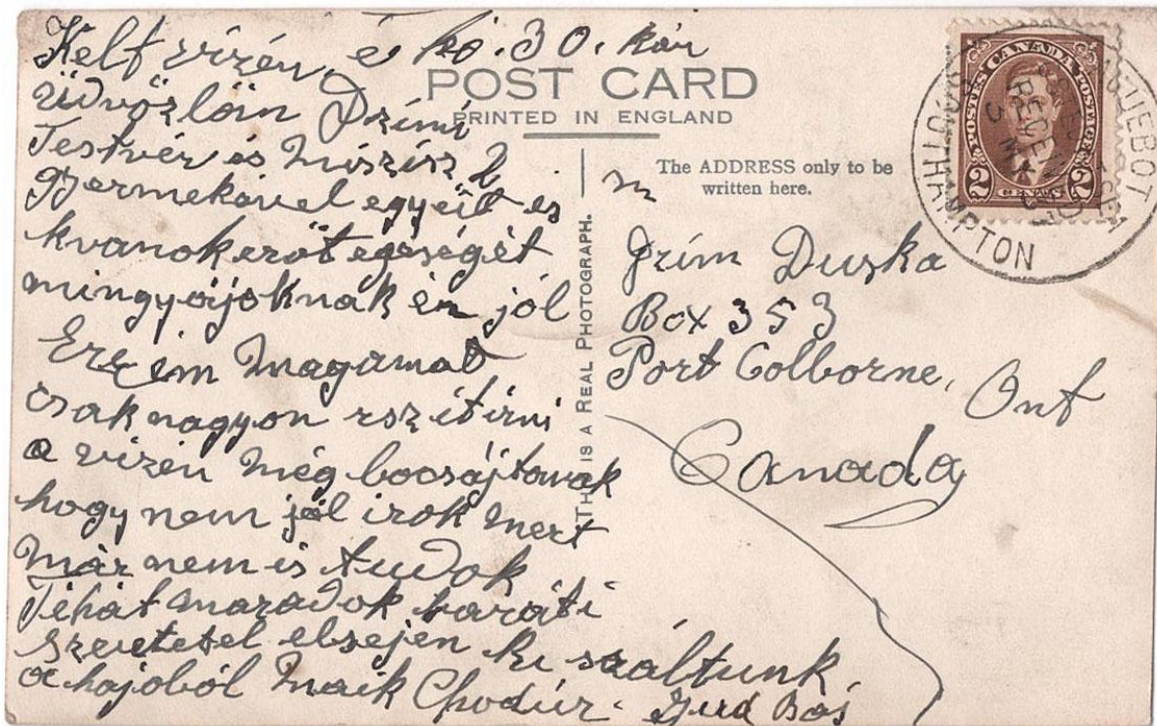 Kelt vizén, é hó. 30. kán
üdvözlöin Dzimi
Testvér és Miszisz 2
gyermekável egyëit es
kvanok eröt egeségét
mingyájoknak én jól
Erzeim magamat
csak nagyon rszit irni
a vizén még bocsájtanak
hogy nem jól irok mert
már nem is tudok
Tehát maradok baráti
szeretetel elsejen ki száltunk
a hajoból Maik Chodúr.
POST CARD
PRINTED IN ENGLAND
The ADDRESS only to be
written here.
THIS IS A REAL PHOTOGRAPH.
Dzim Duzka
Box 353
Port Colborne, Ont
Canada
POSTES CANADA POSTAGE
2 CENTS 2
PAQUEBOT
SOUTHAMPTON